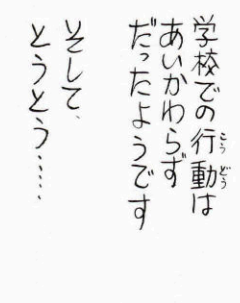 学校での行動は
あいかわらず
だったようです
そして、
とうとう……